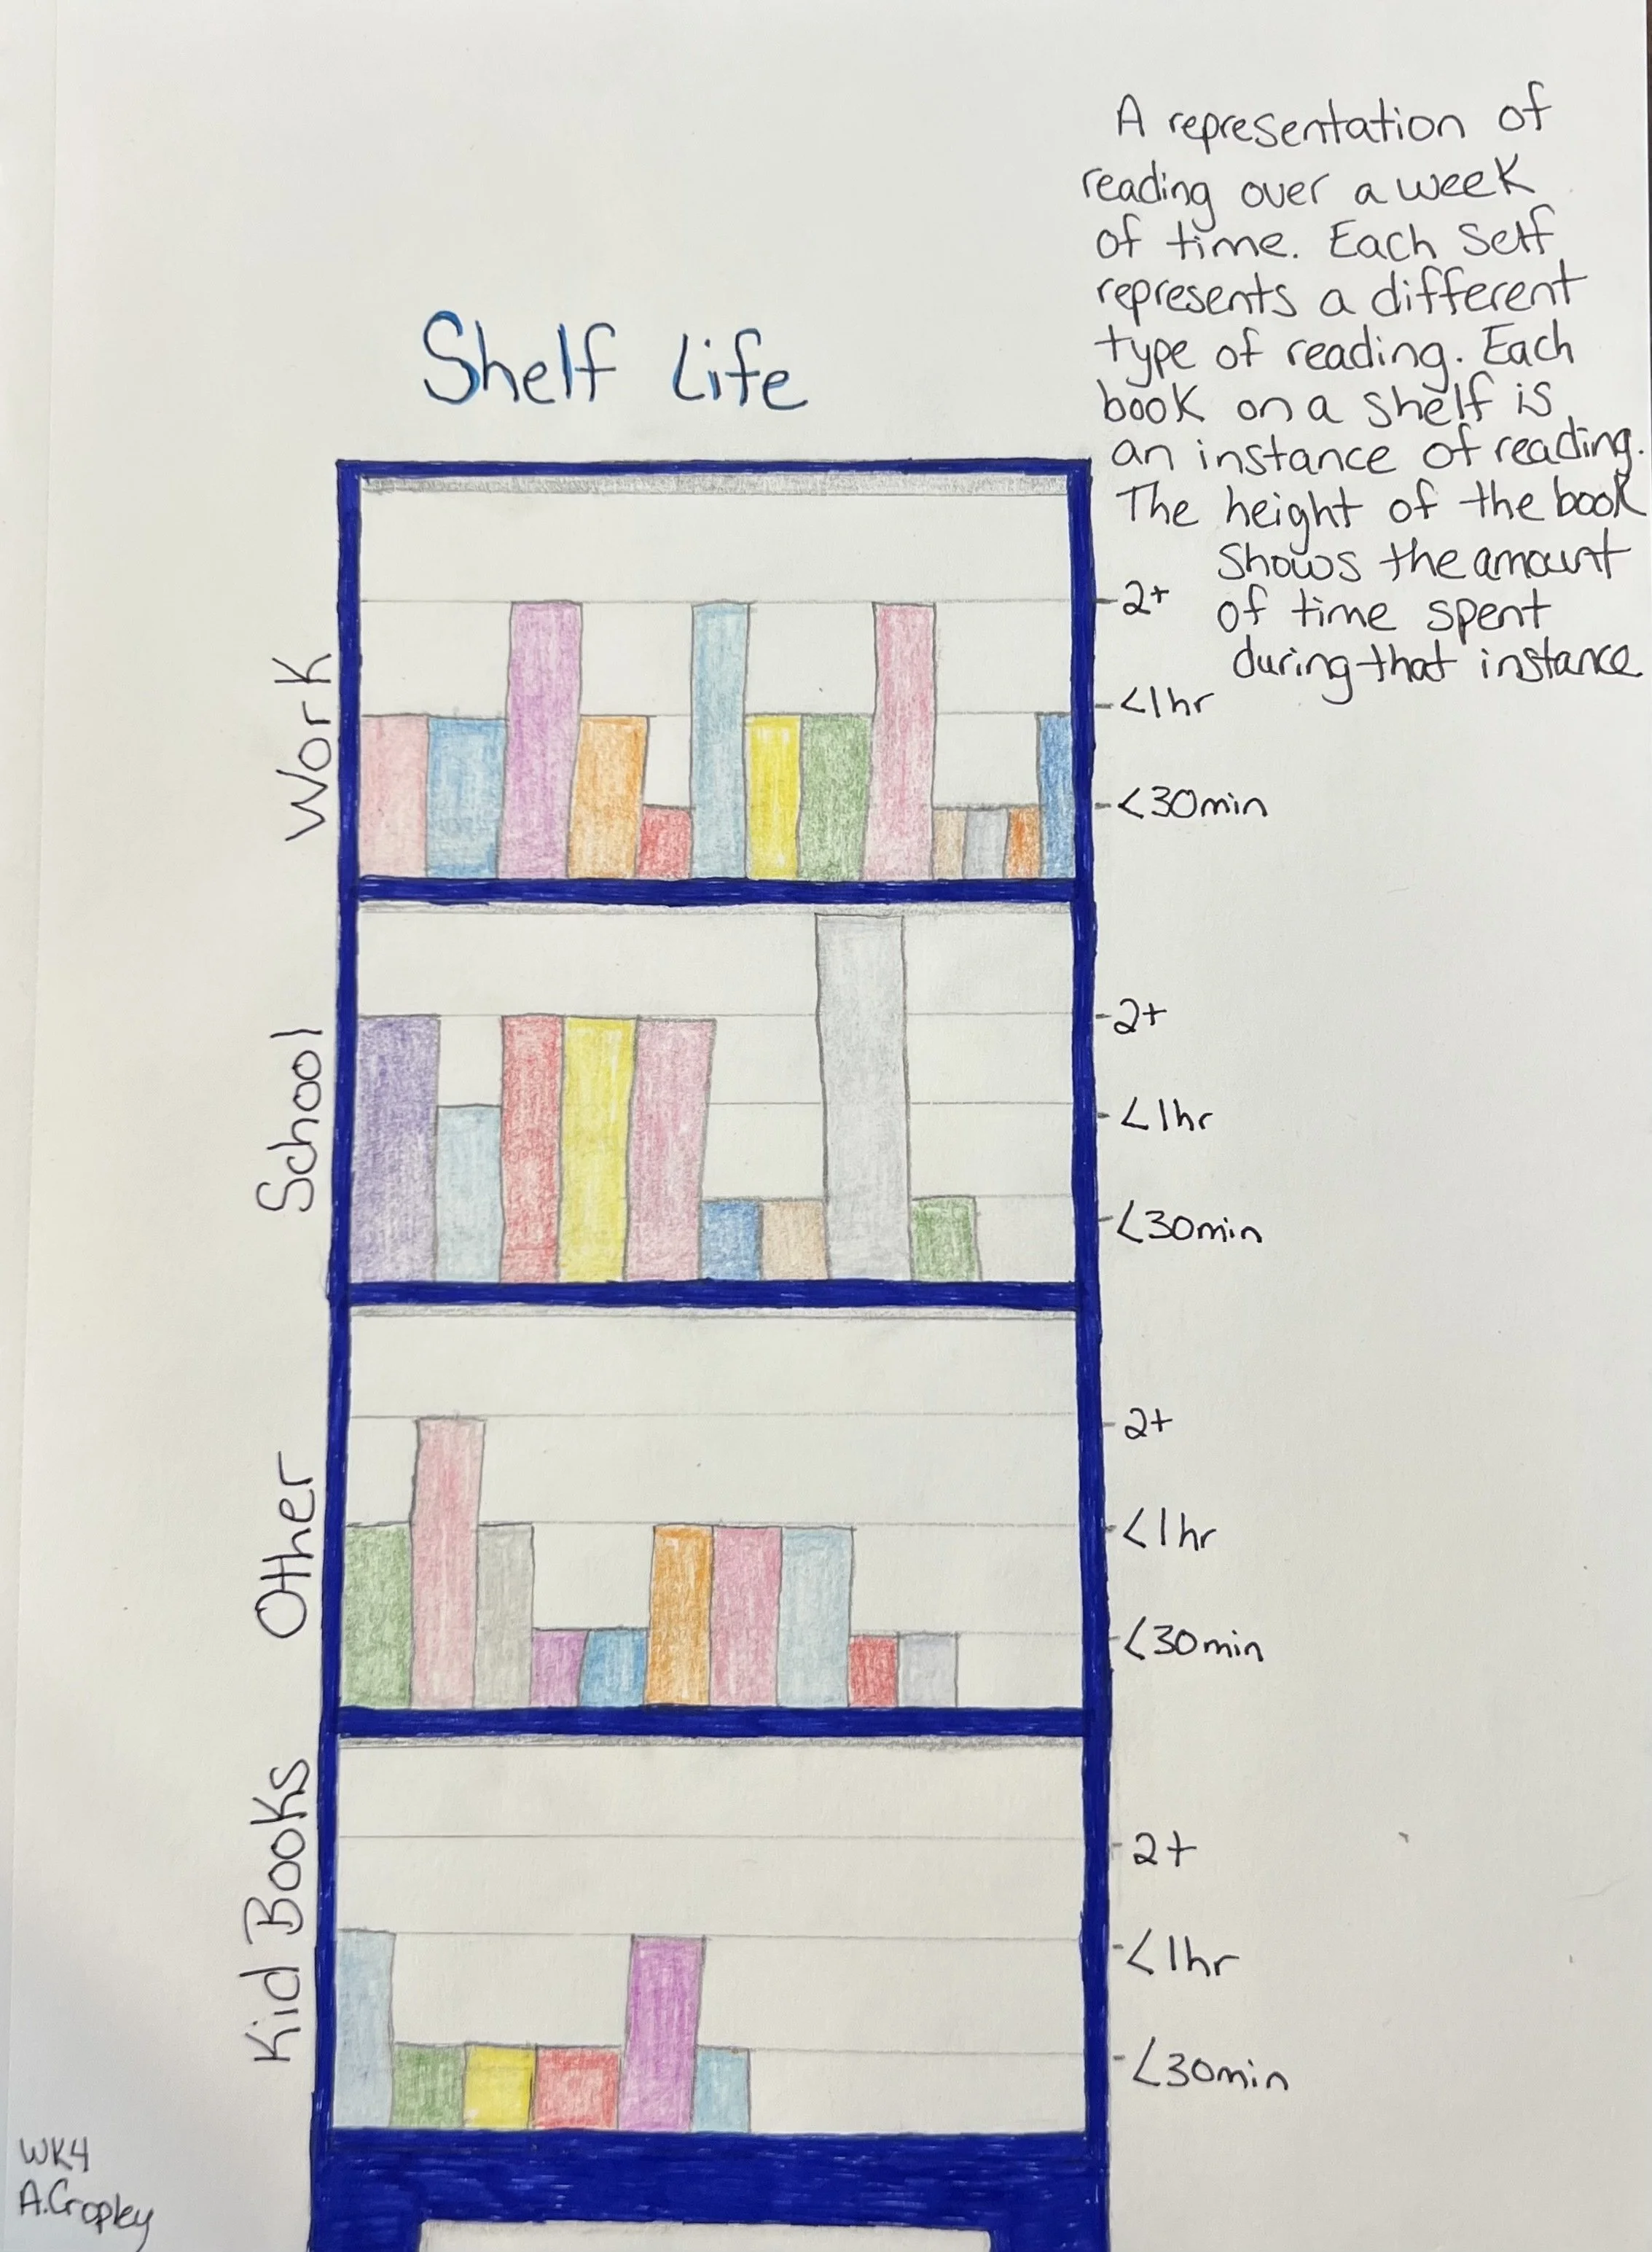 A representation of
reading over a week
of time. Each Self
represents a different
type of reading. Each
book on a shelf is
an instance of reading.
The height of the book
shows the amount
of time spent
during that instance
Shelf Life
Work
2+
<1hr
<30min
School
2+
<1hr
<30min
Other
2+
<1hr
<30min
Kid Books
2+
<1hr
<30min
WK4
A.Cropley